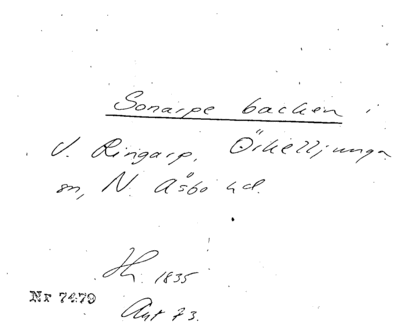 Sonarpe backen i
V. Ringarp, Örkelljunga
sn, N. Åsbo hd.
Hh. 1835
Nr 7479
Ant 73.